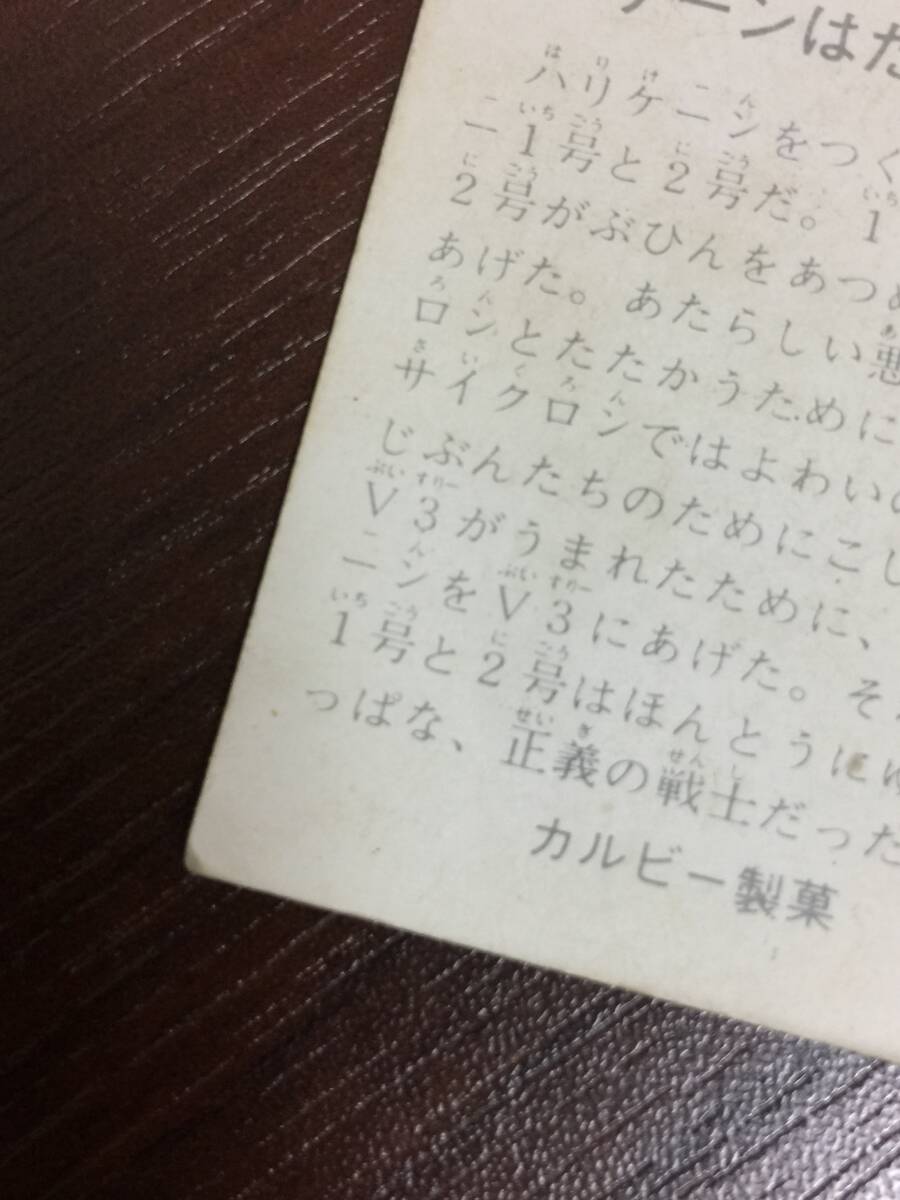 ケニンはだ
ハリケニンをつく
ー1号と2号だ。1
2号がぶひんをあつめ
あげた。あたらしい悪
ロンとたたかうために
サイクロンではよわいの
じぶんたちのためにこし
V3がうまれたために、
ニンをV3にあげた。そ
1号と2号はほんとうにゆ
っぱな、正義の戦士だった
カルビー製菓